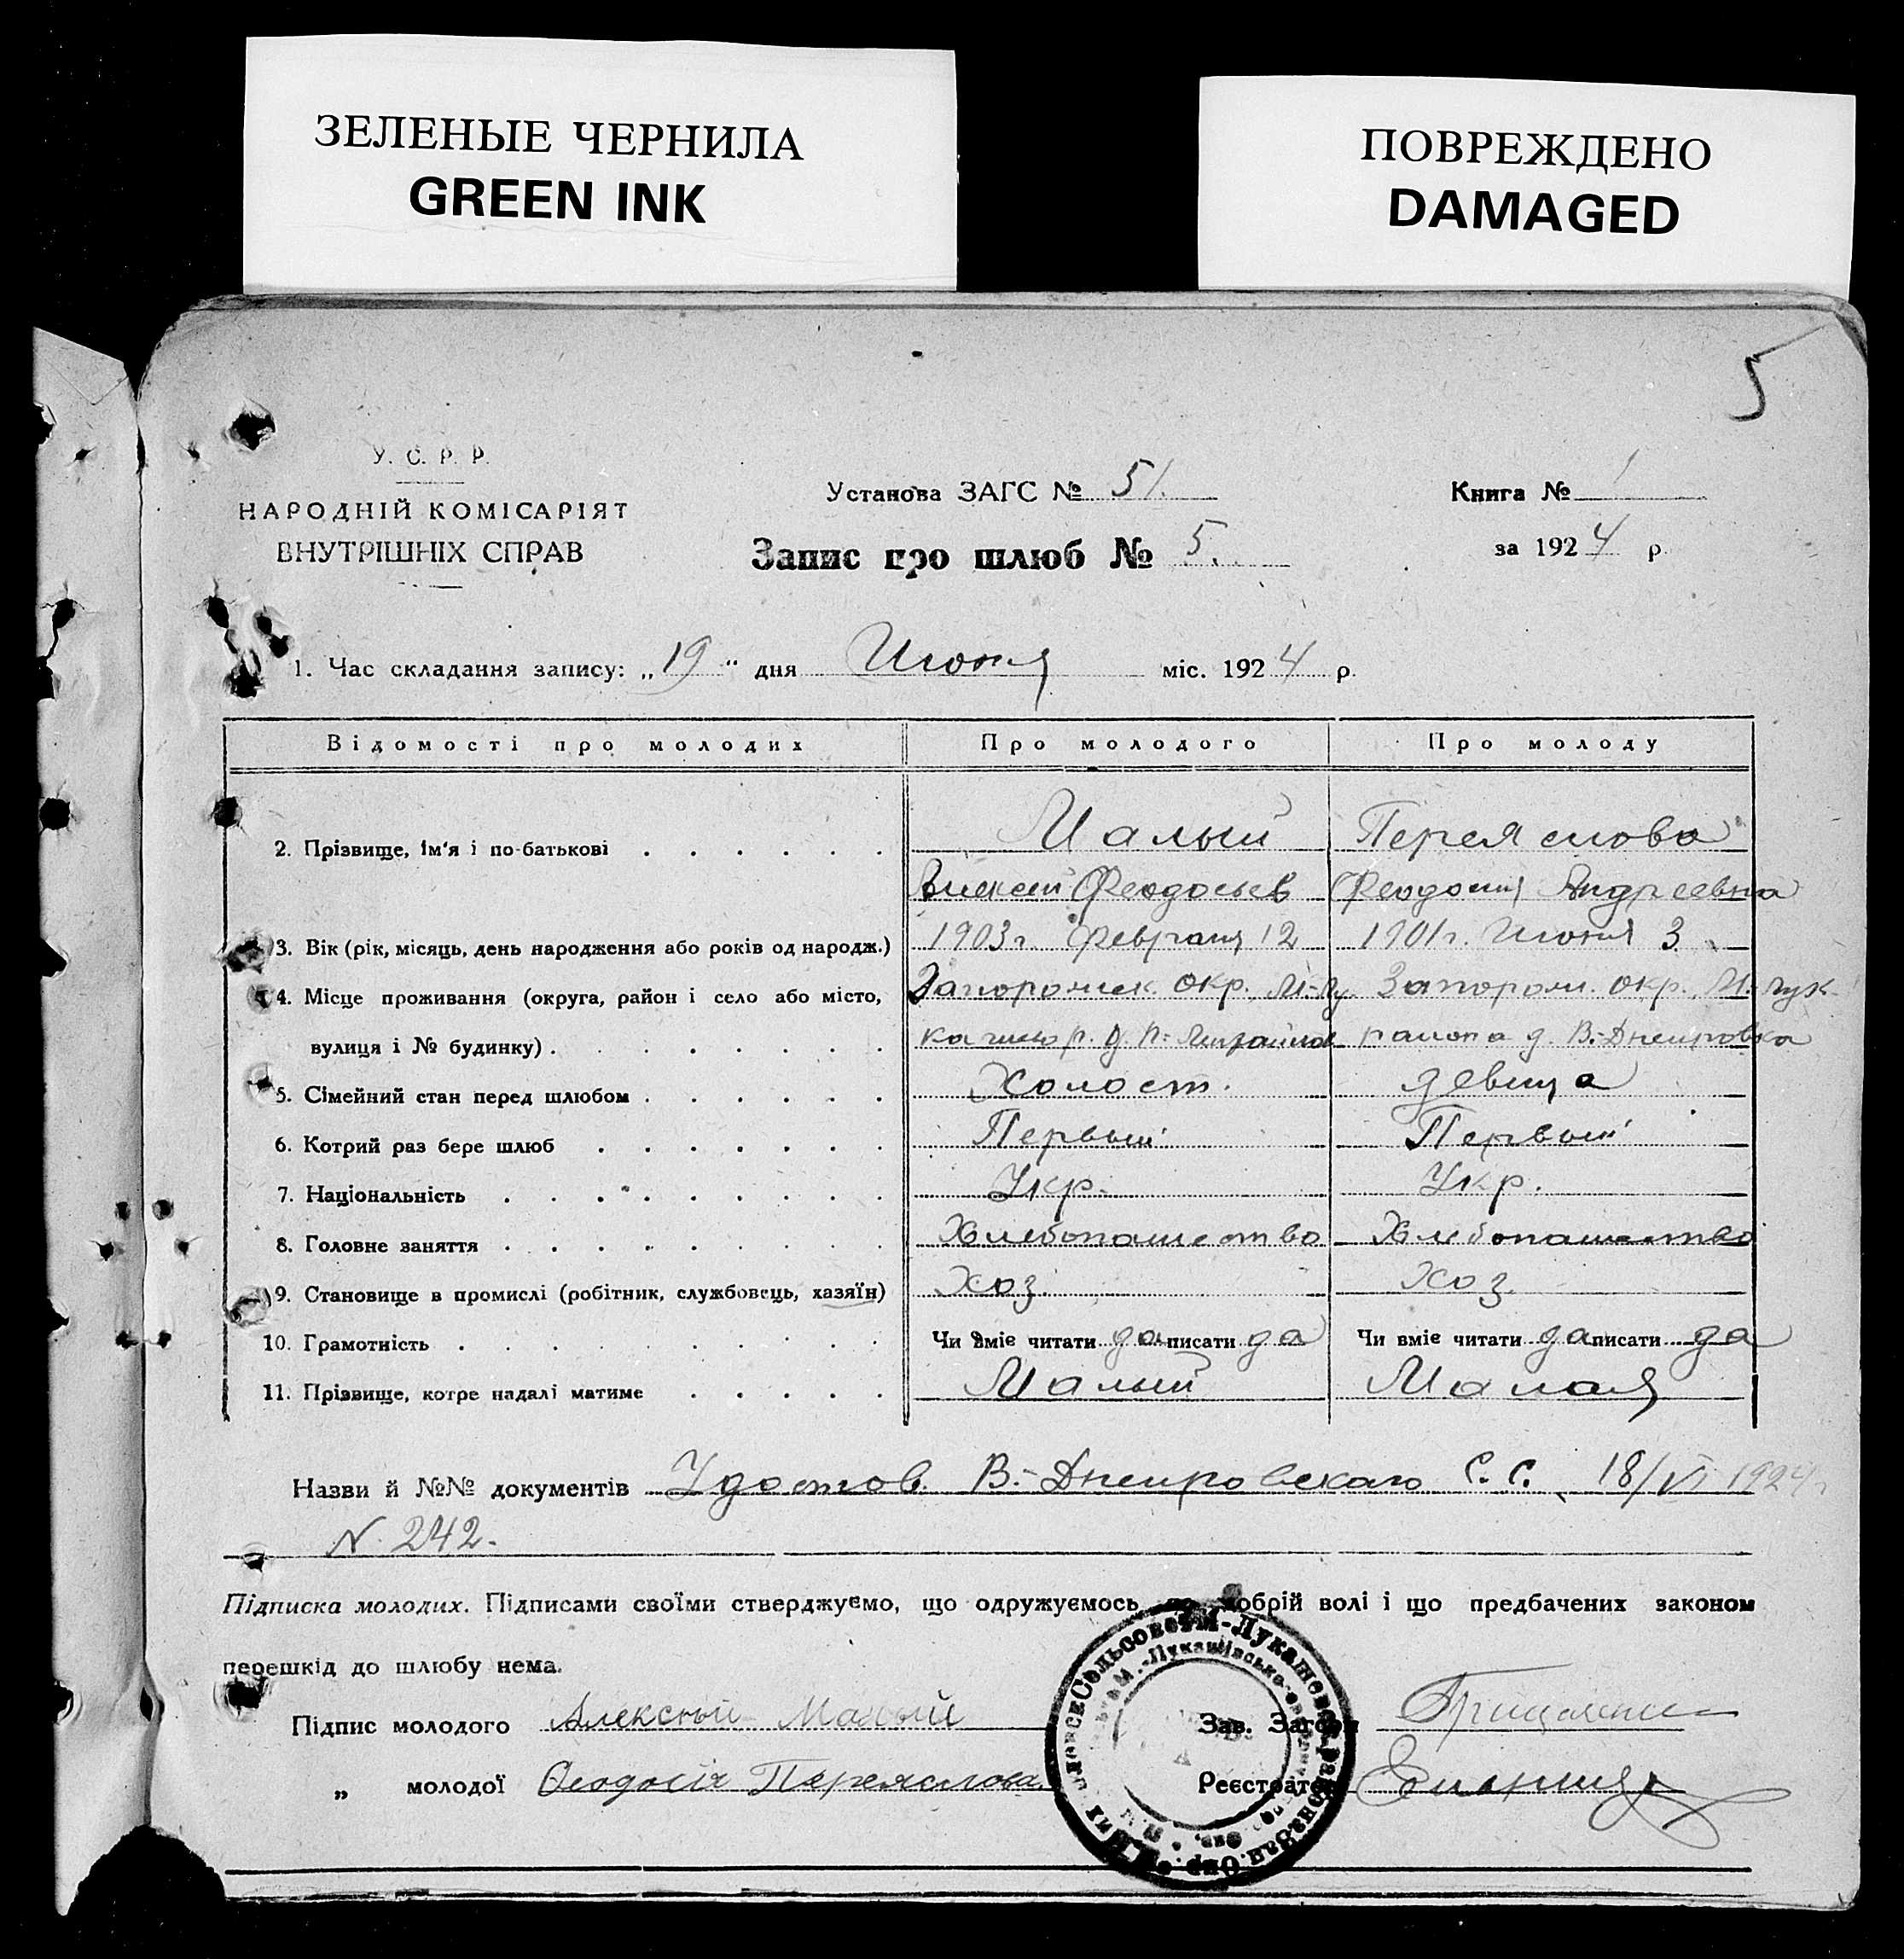 ЗЕЛЕНЫЕ ЧЕРНИЛА
GREEN INK
ПОВРЕЖДЕНО
DAMAGED
5
У. С. Р. Р.
НАРОДНІЙ КОМІСАРІЯТ
ВНУТРІШНІХ СПРАВ
Установа ЗАГС № 51.
Книга № 1
Запис про шлюб № 5.
за 1924 р.
1. Час складання запису: „19“ дня Июня міс. 1924 р.
Відомості про молодих Про молодого Про молоду
2. Прізвище, ім'я і по-батькові Малый Переяслова
Алексей Феодосьев Феодосия Андреевна
3. Вік (рік, місяць, день народження або років од народж.) 1903 г. февраля 12 1901 г. Июня 3
4. Місце проживання (округа, район і село або місто, Запорожск. Окр., М-Лу Запорож. Окр., М.-Лук-
вулиця і № будинку) района д. В.-Днепровка
5. Сімейний стан перед шлюбом Холост. девица
6. Котрий раз бере шлюб Первый Первый
7. Національність Укр. Укр.
8. Головне заняття Хлебопашество Хлебопашество
9. Становище в промислі (робітник, службовець, хазяїн) Хоз. Хоз.
10. Грамотність Чи вміє читати да писати да Чи вміє читати да писати да
11. Прізвище, котре надалі матиме Малый Малая
Назви й №№ документів Удостов. В.-Днепровскаго С. С. 18/VI 1924 г.
N. 242.
Підписка молодих. Підписами своїми стверджуємо, що одружуємось по добрій волі і що предбачених законом
перешкід до шлюбу нема.
Підпис молодого Алексѣй Малый Зав. Загсом
„ молодої Феодосія Переяслова Реєстратор